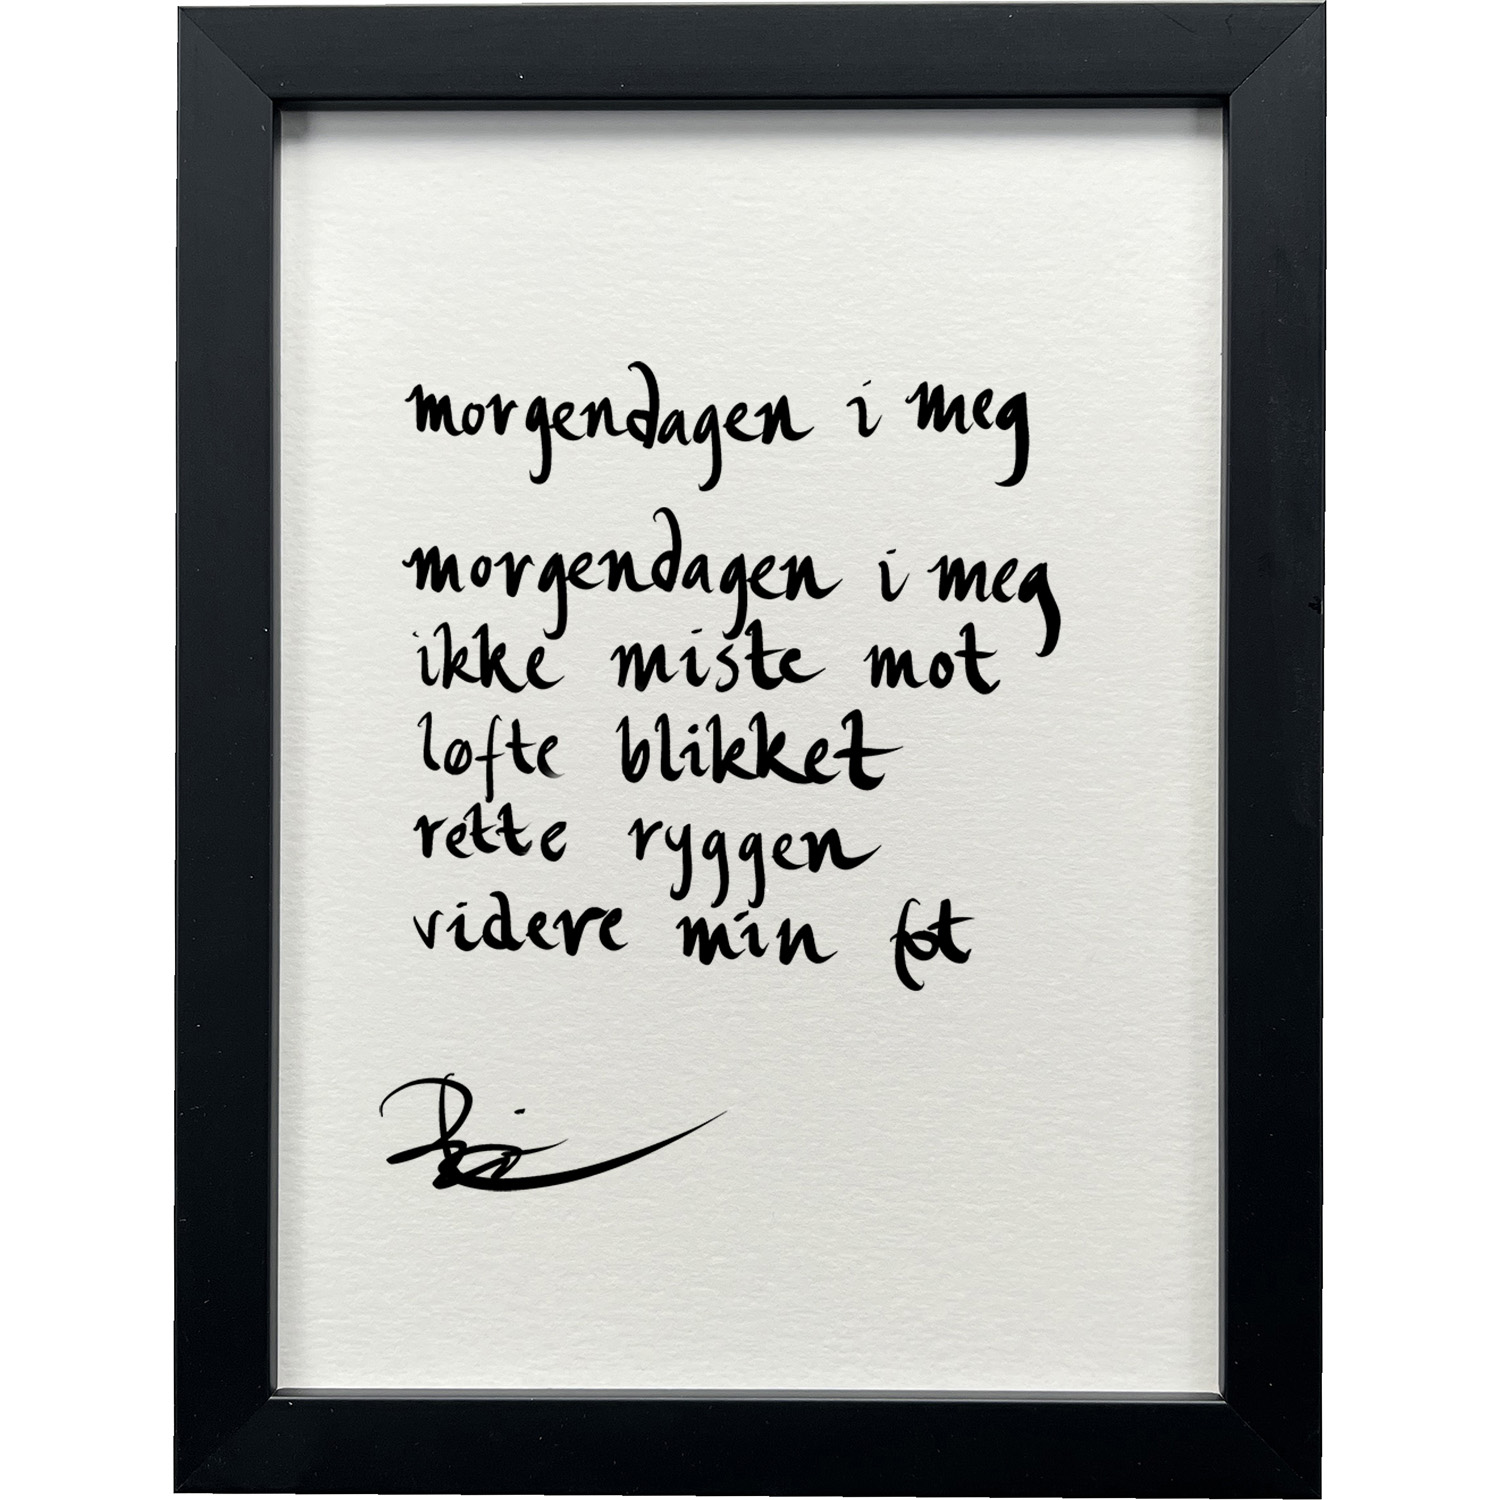 morgendagen i meg
morgendagen i meg
ikke miste mot
løfte blikket
rette ryggen
videre min fot